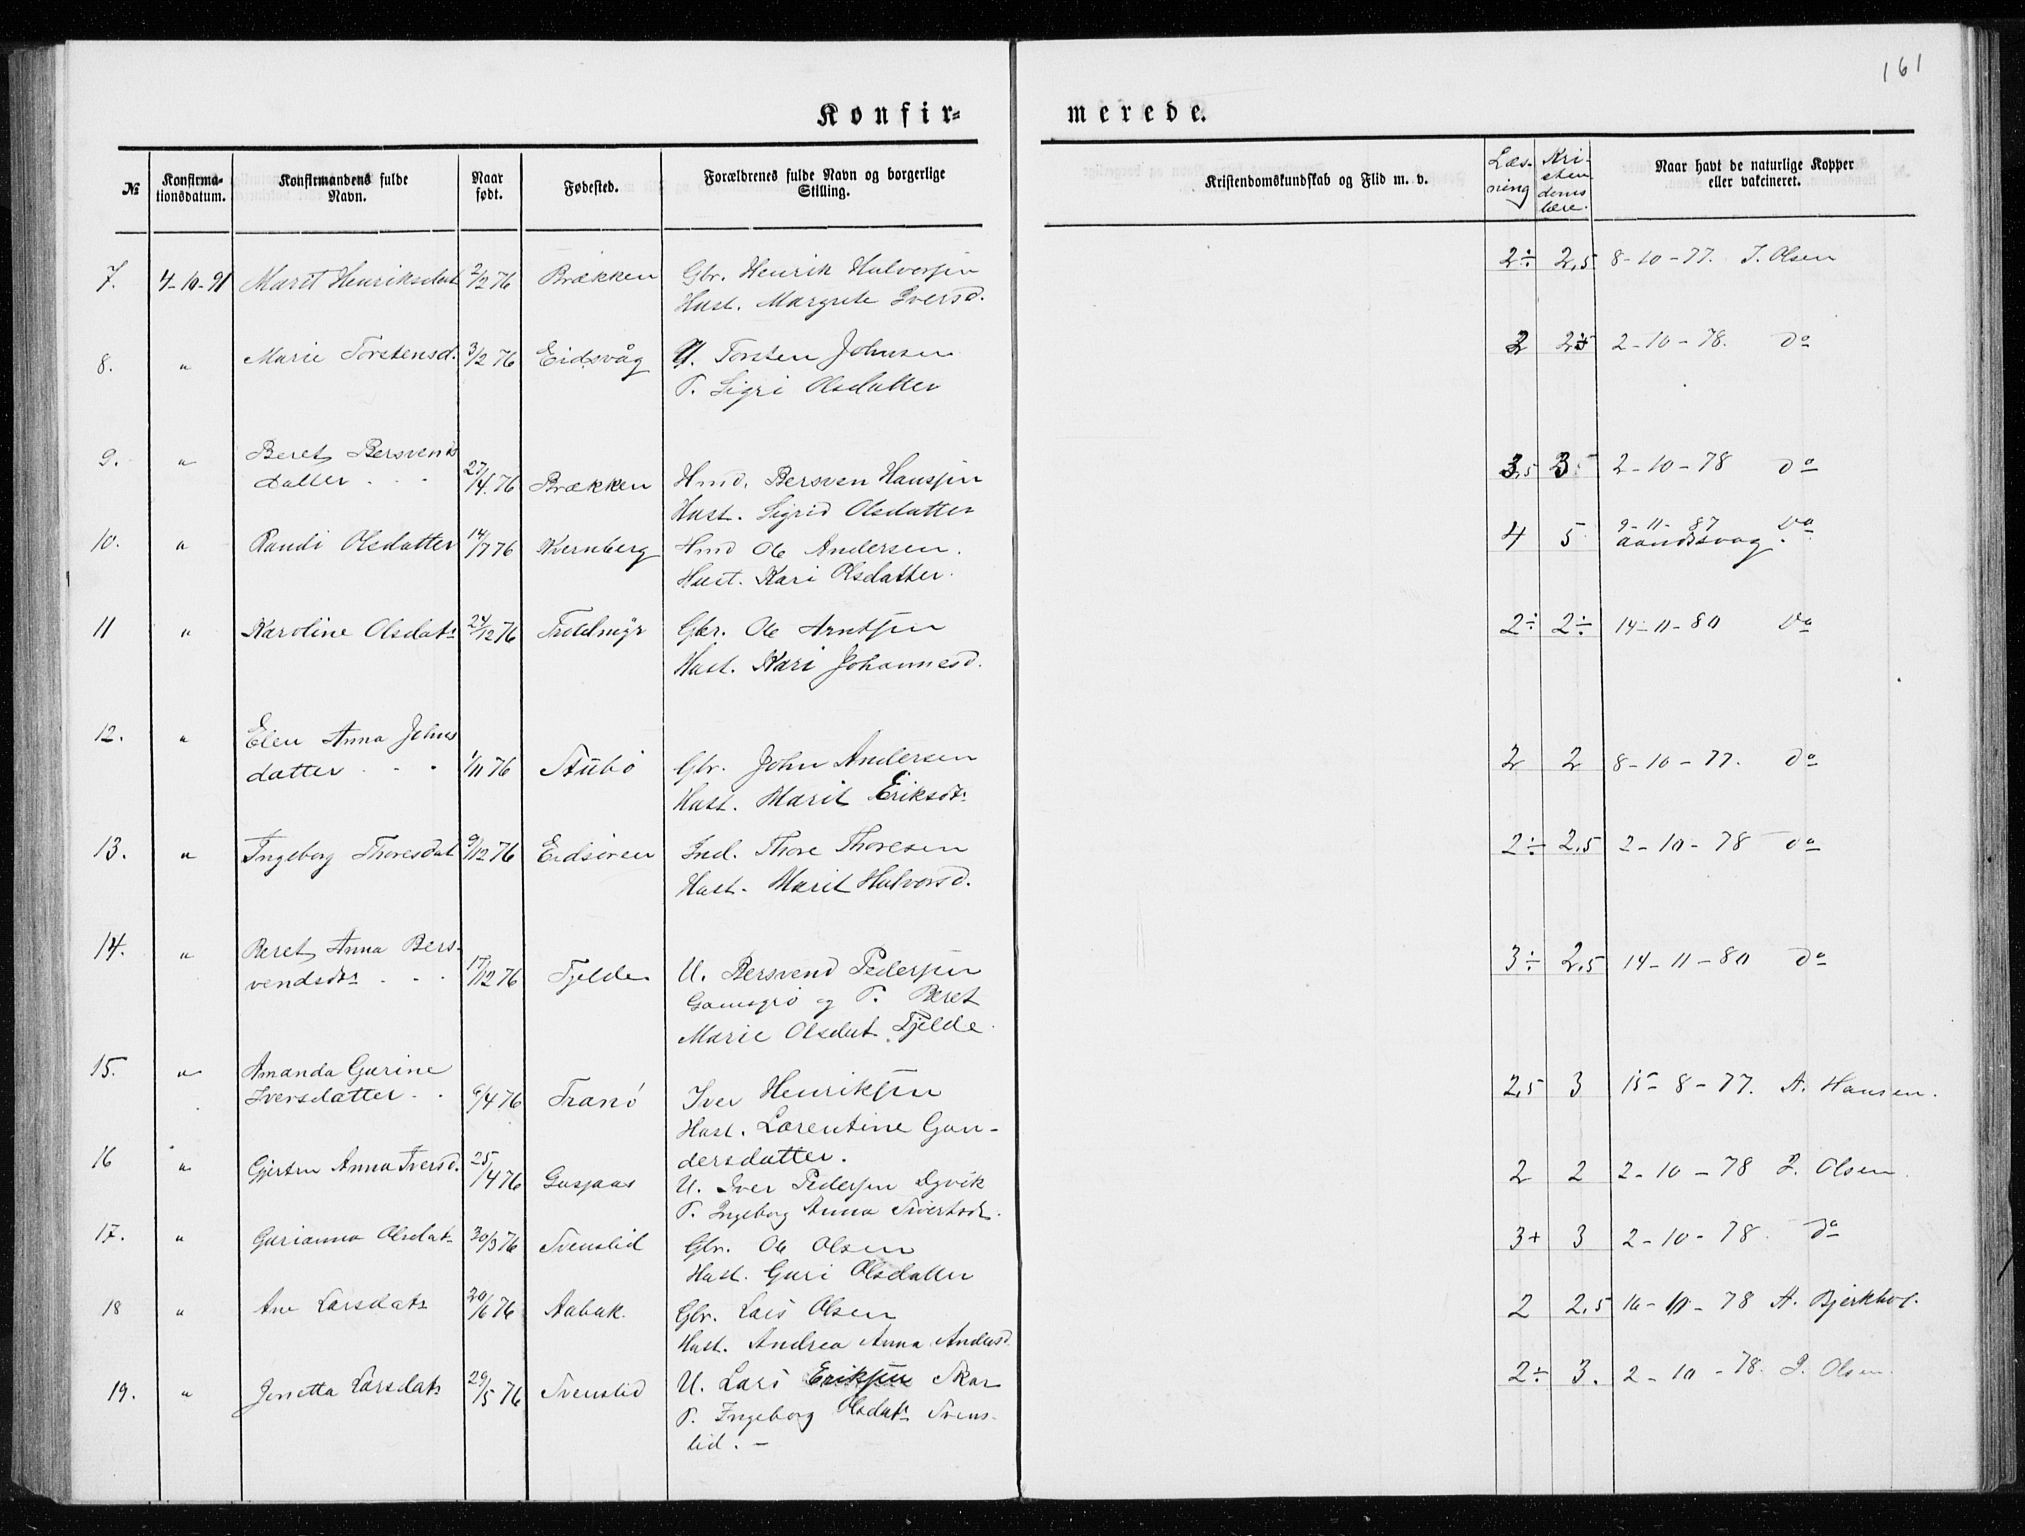 161
Konfir- merede.
№ Konfirmationsdatum. Konfirmandens fulde Navn. Naar født. Fødested. Forældrenes fulde Navn og borgerlige Stilling. Kristendomskundskab og Flid m. v. Læsning Kristendomslære. Naar havt de naturlige Kopper eller vakcineret.
7. 4-10-91 Marit Henriksdat 2/2 76 Brækken Gbr. Henrik Halvorsen 2÷ 2,5 8-10-77. I. Olsen
Hust. Margrete Iversd.
8. " Marie Torstensd. 3/2 76 Eidsvåg U. Torsten Johnsen 2 2,5 2-10-78. do
P. Sigri Olsdatter
9. " Beret Bersvends 3,5 3 2-10-78 do
datter 27/4 76 Brækken Hmd. Bersven Hansen
Hust. Sigrid Olsdatter
10. " Randi Olsdatter 14/7 76 Kvernberg Hmd Ole Andersen. 4 5 2-11-87 do
Hust. Kari Olsdatter.
11 " Karoline Olsdatr 24/12 76 Troldmyr Gbr. Ole Arntsen 2÷ 2÷ 14-11-80 do
Hust. Kari Johannesd.
12. " Elen Anna Johns
datter 1/11 76 Stubø Gbr. John Andersen 2 2 8-10-77. do
Hust. Marit Eriksdtr
13. " Ingeborg Thoresdat 9/12 76 Eidsøren Ind. Thore Thoresen 2÷ 2,5 2-10-78 do
Hust. Marit Halvorsd.
14. " Beret Anna Bers-
vendsdtr 17/12 76 Tjelde U. Bersvend Pedersen 3÷ 2,5 14-11-80 do
og P. Beret
Marie Olsdat. Tjelde.
15. " Amanda Gurine
Iversdatter 6/4 76 Tranø Iver Henriksen 2,5 3 15-8-77. A. Hansen.
Hust. Lorentine Gun-
dersdatter.
16 " Gjertru Anna Iversd. 25/4 76 Gusjaas U. Iver Pedersen Dyvik 2 2 2-10-78 I. Olsen.
P. Ingeborg Anna Sivertsdr.
17. " Gurianna Olsdatr 30/3 76 Svenslid Gbr. Ole Olsen 3+ 3 2-10-78. do
Hust. Guri Olsdatter
18 " Ane Larsdatr 20/6 76 Aabak. Gbr. Lars Olsen 2 2,5 16-10-78 A. Bjerkhol.
Hust. Andrea Anna Andersd
19. " Jonetta Larsdatr 29/5 76 Svenslid U. Lars Eriksen Skar 2÷ 3. 2-10-78. I. Olsen.
P. Ingeborg Olsdatr Svens-
lid. –